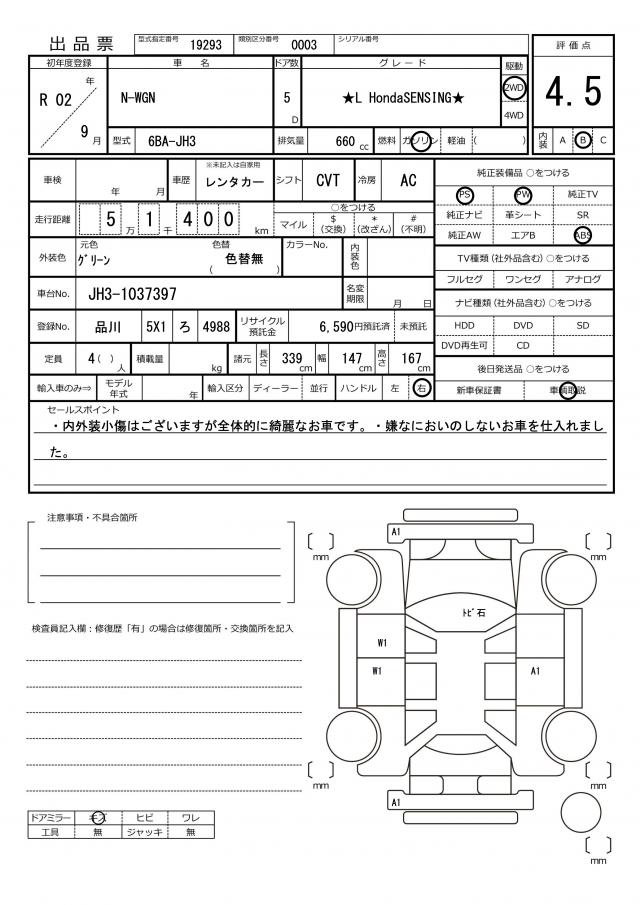 出品票
型式指定番号 19293 類別区分番号 0003 シリアル番号
評価点
初年度登録 車名 ドア数 グレード 駆動
R 02 年 9 月
N-WGN
5 D
★L HondaSENSING★
2WD
4WD
4.5
型式 6BA-JH3 排気量 660 cc 燃料 ガソリン 軽油 ( )
内装 A B C
車検 年 月 車歴 ※未記入は自家用 レンタカー シフト CVT 冷房 AC
純正装備品 ○をつける
PS PW 純正TV
純正ナビ 革シート SR
純正AW エアB ABS
走行距離 5 万 1 千 4 0 0 km
○をつける
マイル $(交換) *(改ざん) #(不明)
外装色 元色 グリーン 色替 色替無 ( ) カラーNo. 内装色
TV種類 (社外品含む) ○をつける
フルセグ ワンセグ アナログ
車台No. JH3-1037397 名変期限 月 日
ナビ種類 (社外品含む) ○をつける
HDD DVD SD
DVD再生可 CD
登録No. 品川 5X1 ろ 4988 リサイクル預託金 6,590円預託済 未預託
定員 4 ( ) 人 積載量 kg 諸元 長さ 339 cm 幅 147 cm 高さ 167 cm
後日発送品 ○をつける
新車保証書 車輌取説
輸入車のみ⇒ モデル年式 年 輸入区分 ディーラー 並行 ハンドル 左 右
セールスポイント
・内外装小傷はございますが全体的に綺麗なお車です。・嫌なにおいのしないお車を仕入れまし
た。
注意事項・不具合箇所
検査員記入欄：修復歴「有」の場合は修復箇所・交換箇所を記入
A1
mm
mm
ﾄﾋﾞ石
W1
W1
A1
mm
mm
A1
mm
ドアミラー キズ ヒビ ワレ
工具 無 ジャッキ 無